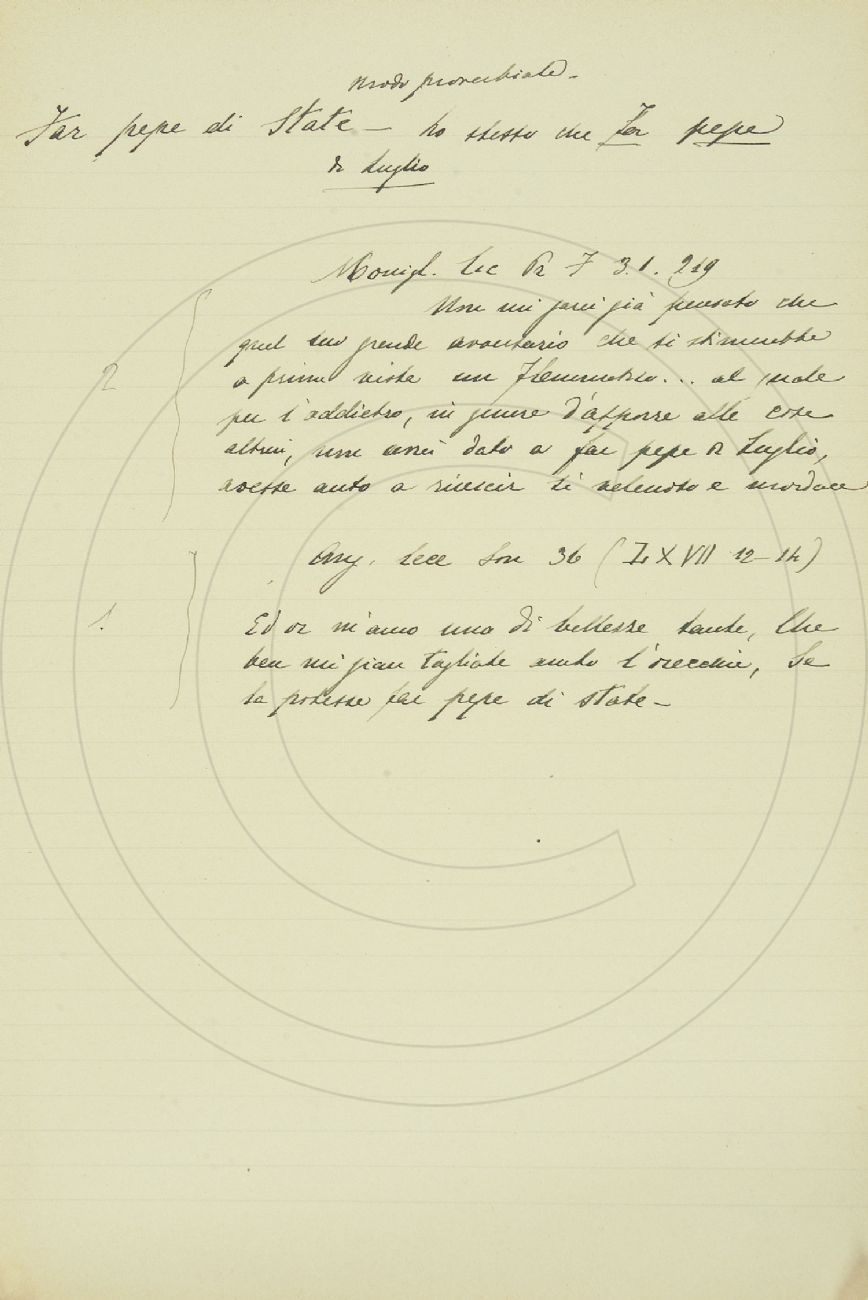 Modo proverbiale -
Far pepe di State - Lo stesso che Far pepe
di Luglio
Monigl. 3. 1. 219
2
Non mi sarei già pensato che
quel suo grande avversario che si stimerebbe
a prima vista un Flemmatico... al quale
per l'addietro, in genere d'apporre alle cose
altrui, non avrei dato a far pepe di Luglio,
avesse auto a riuscir sì velenoso e mordace
Son 36 (LXVII 12-14)
1.
Ed or m'amo una di bellezze tante, Che
ben mi sian tagliate ambo l'orecchie, Se
la potesse far pepe di state -